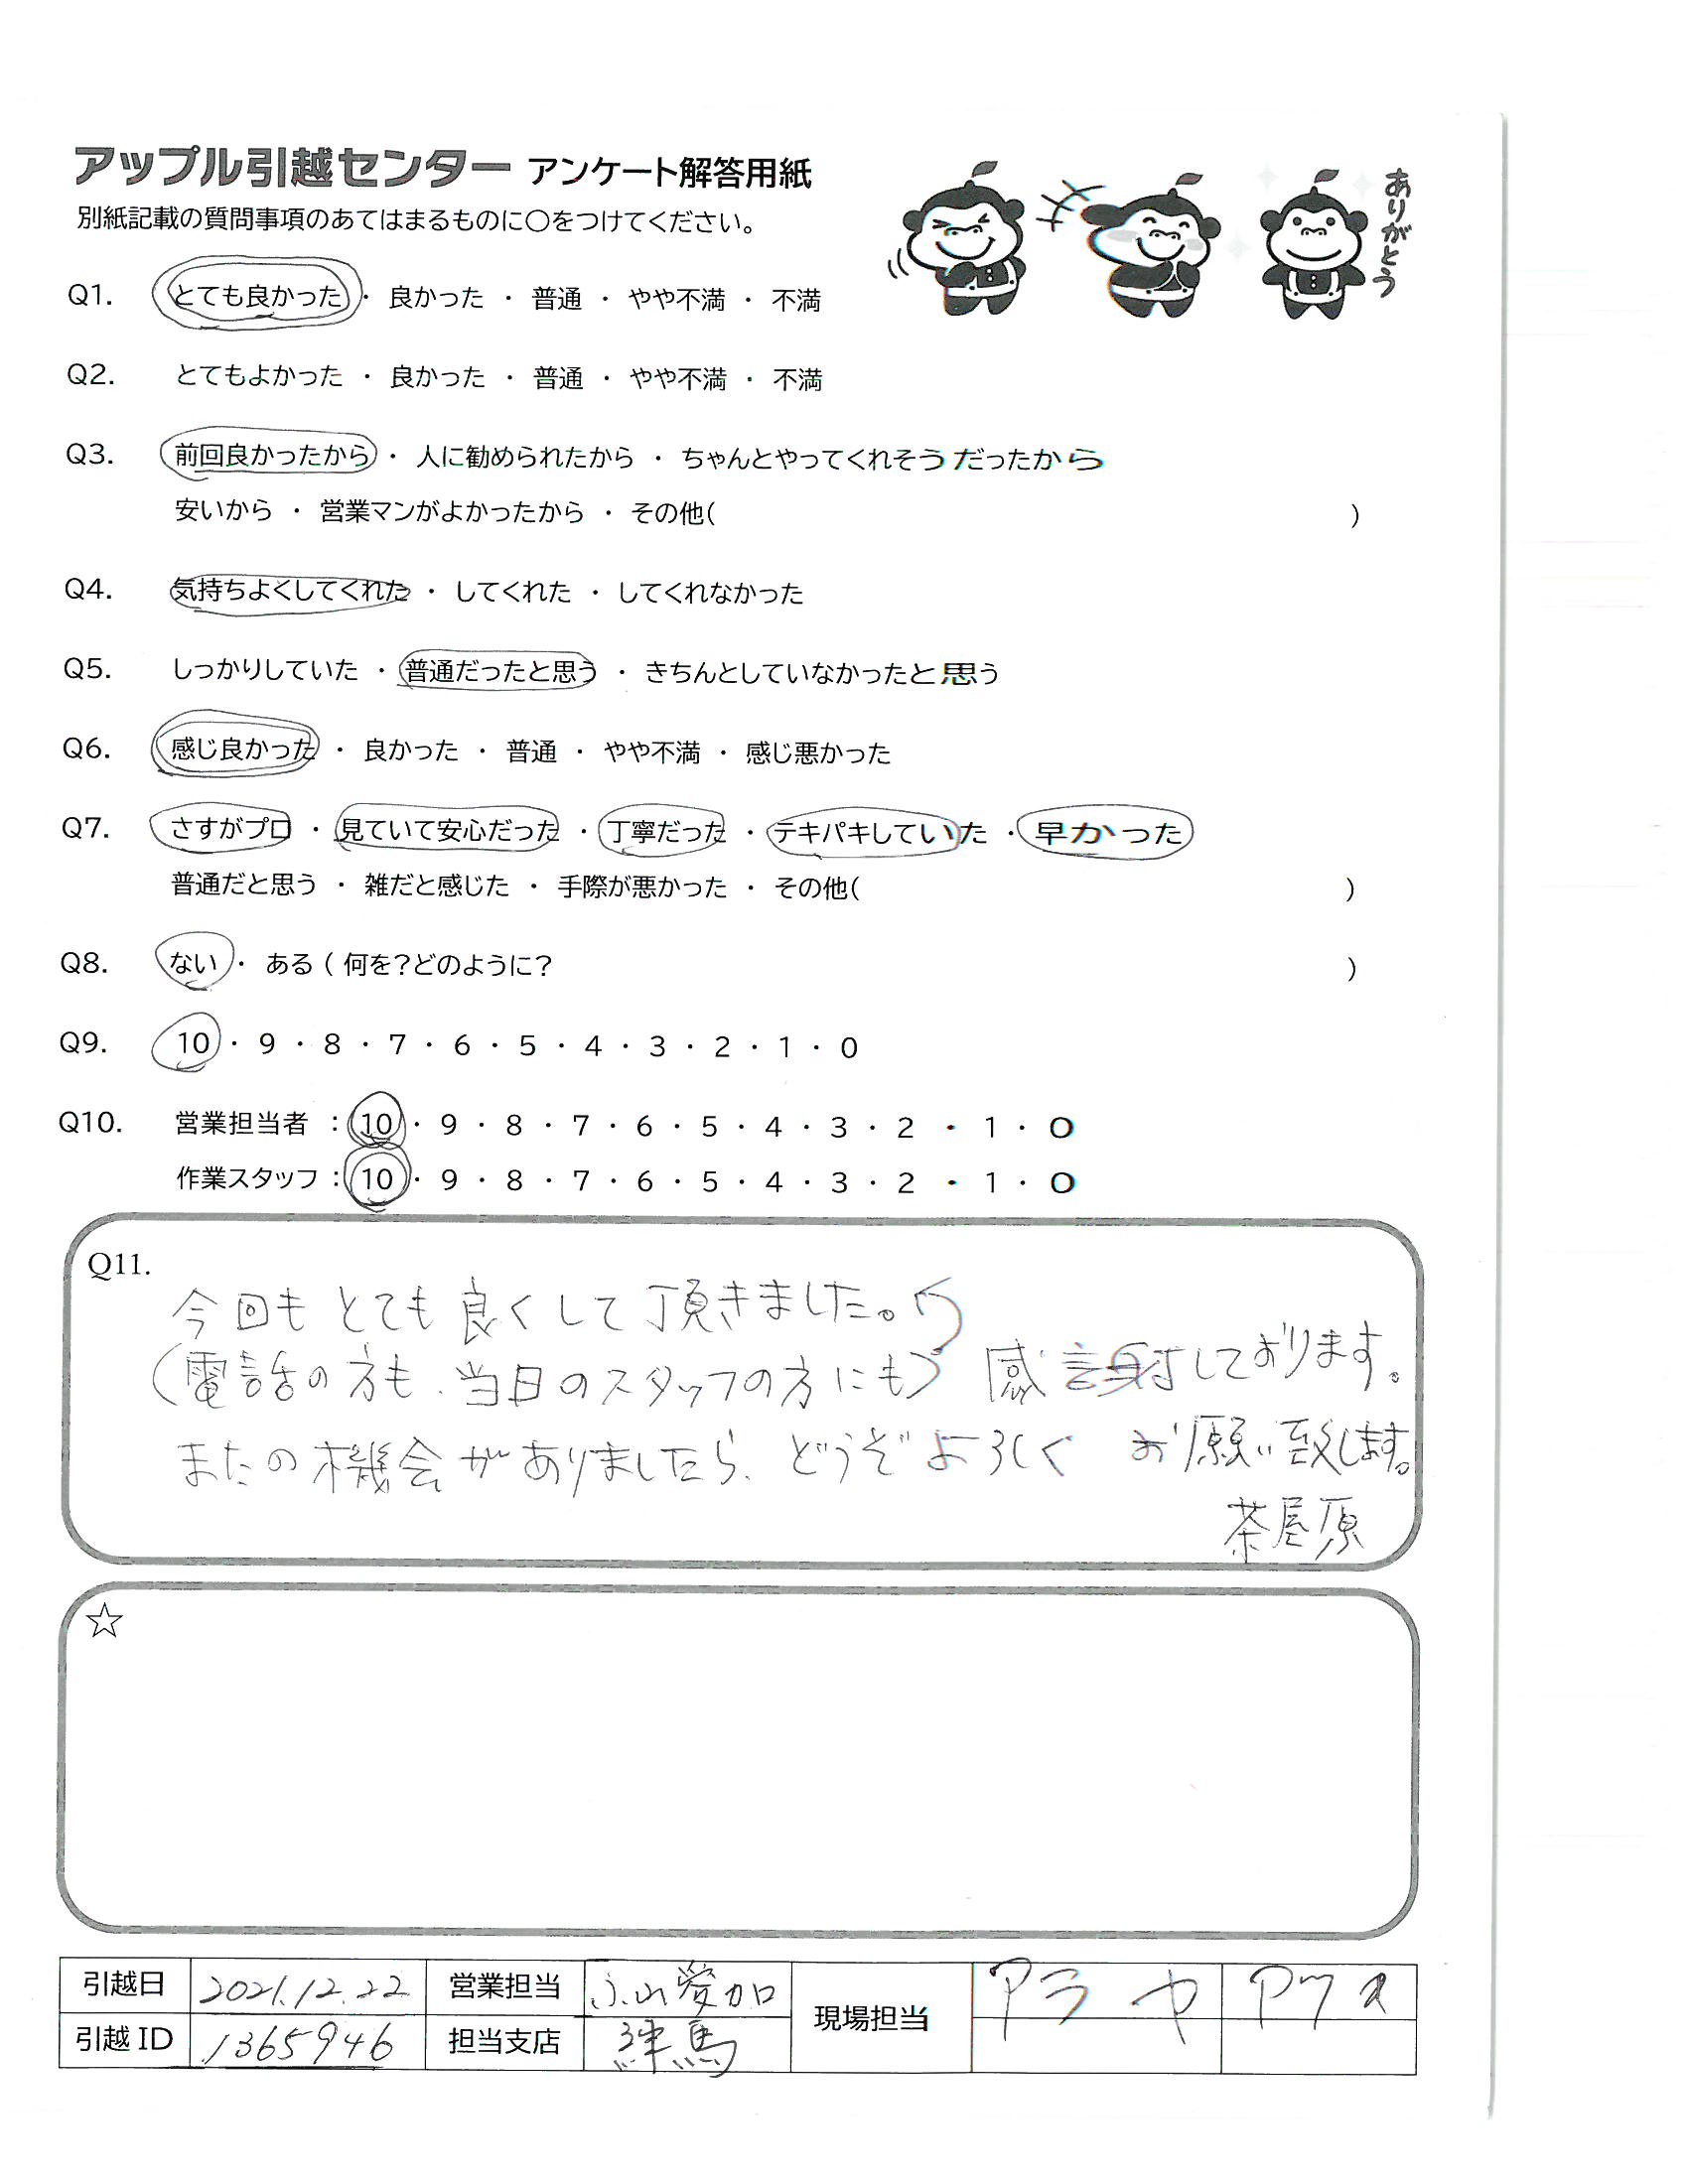 アップル引越センター アンケート解答用紙
別紙記載の質問事項のあてはまるものに○をつけてください。
ありがとう
Q1. とても良かった ・ 良かった ・ 普通 ・ やや不満 ・ 不満
Q2. とてもよかった ・ 良かった ・ 普通 ・ やや不満 ・ 不満
Q3. 前回良かったから ・ 人に勧められたから ・ ちゃんとやってくれそうだったから
安いから ・ 営業マンがよかったから ・ その他( )
Q4. 気持ちよくしてくれた ・ してくれた ・ してくれなかった
Q5. しっかりしていた ・ 普通だったと思う ・ きちんとしていなかったと思う
Q6. 感じ良かった ・ 良かった ・ 普通 ・ やや不満 ・ 感じ悪かった
Q7. さすがプロ ・ 見ていて安心だった ・ 丁寧だった ・ テキパキしていた ・ 早かった
普通だと思う ・ 雑だと感じた ・ 手際が悪かった ・ その他( )
Q8. ない ・ ある ( 何を?どのように? )
Q9. 10 ・ 9 ・ 8 ・ 7 ・ 6 ・ 5 ・ 4 ・ 3 ・ 2 ・ 1 ・ 0
Q10. 営業担当者 : 10 ・ 9 ・ 8 ・ 7 ・ 6 ・ 5 ・ 4 ・ 3 ・ 2 ・ 1 ・ 0
作業スタッフ : 10 ・ 9 ・ 8 ・ 7 ・ 6 ・ 5 ・ 4 ・ 3 ・ 2 ・ 1 ・ 0
Q11.
今回もとても良くして頂きました。
(電話の方も、当日のスタッフの方にも) 感謝しております。
またの機会がありましたら、どうぞよろしくお願い致します。
茶屋原
☆
引越日 2021.12.22 営業担当 山愛加 現場担当 アラヤ
引越ID 1365946 担当支店 練馬